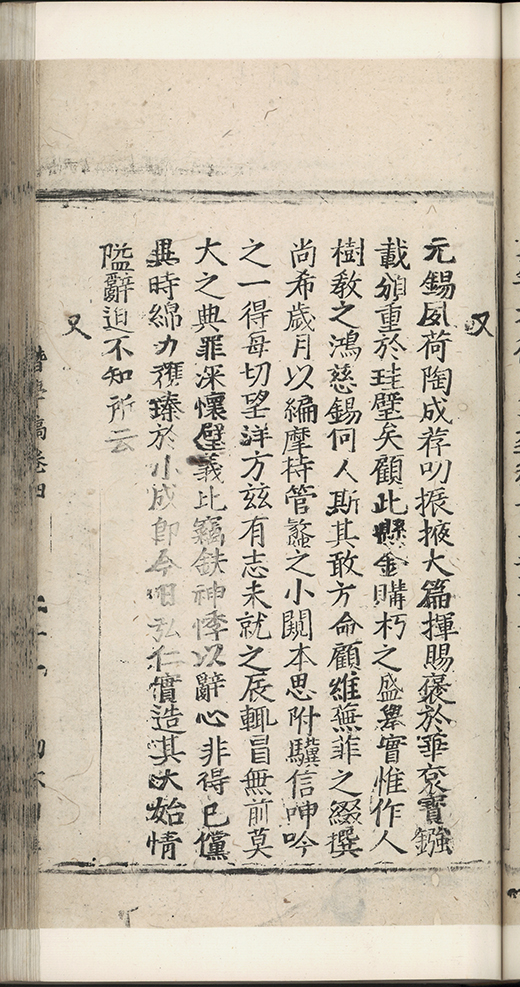 又
元錫夙荷陶成荐叨振掖大篇揮賜褒於華衮寳鏹
載頒重於珪璧矣顧此縣金購朽之盛舉實惟作人
樹教之鴻慈錫何人斯其敢方命顧維蕪菲之綴撰
尚希歲月以編摩持管蠡之小闚本思附驥信呻吟
之一得毋切望洋方兹有志未就之辰輒冒無前莫
大之典罪深懷璧義比竊鈇神悸以辭心非得已儻
異時綿力獲臻於小成即今日弘仁實造其大始情
隘辭迫不知所云
又
稿卷四